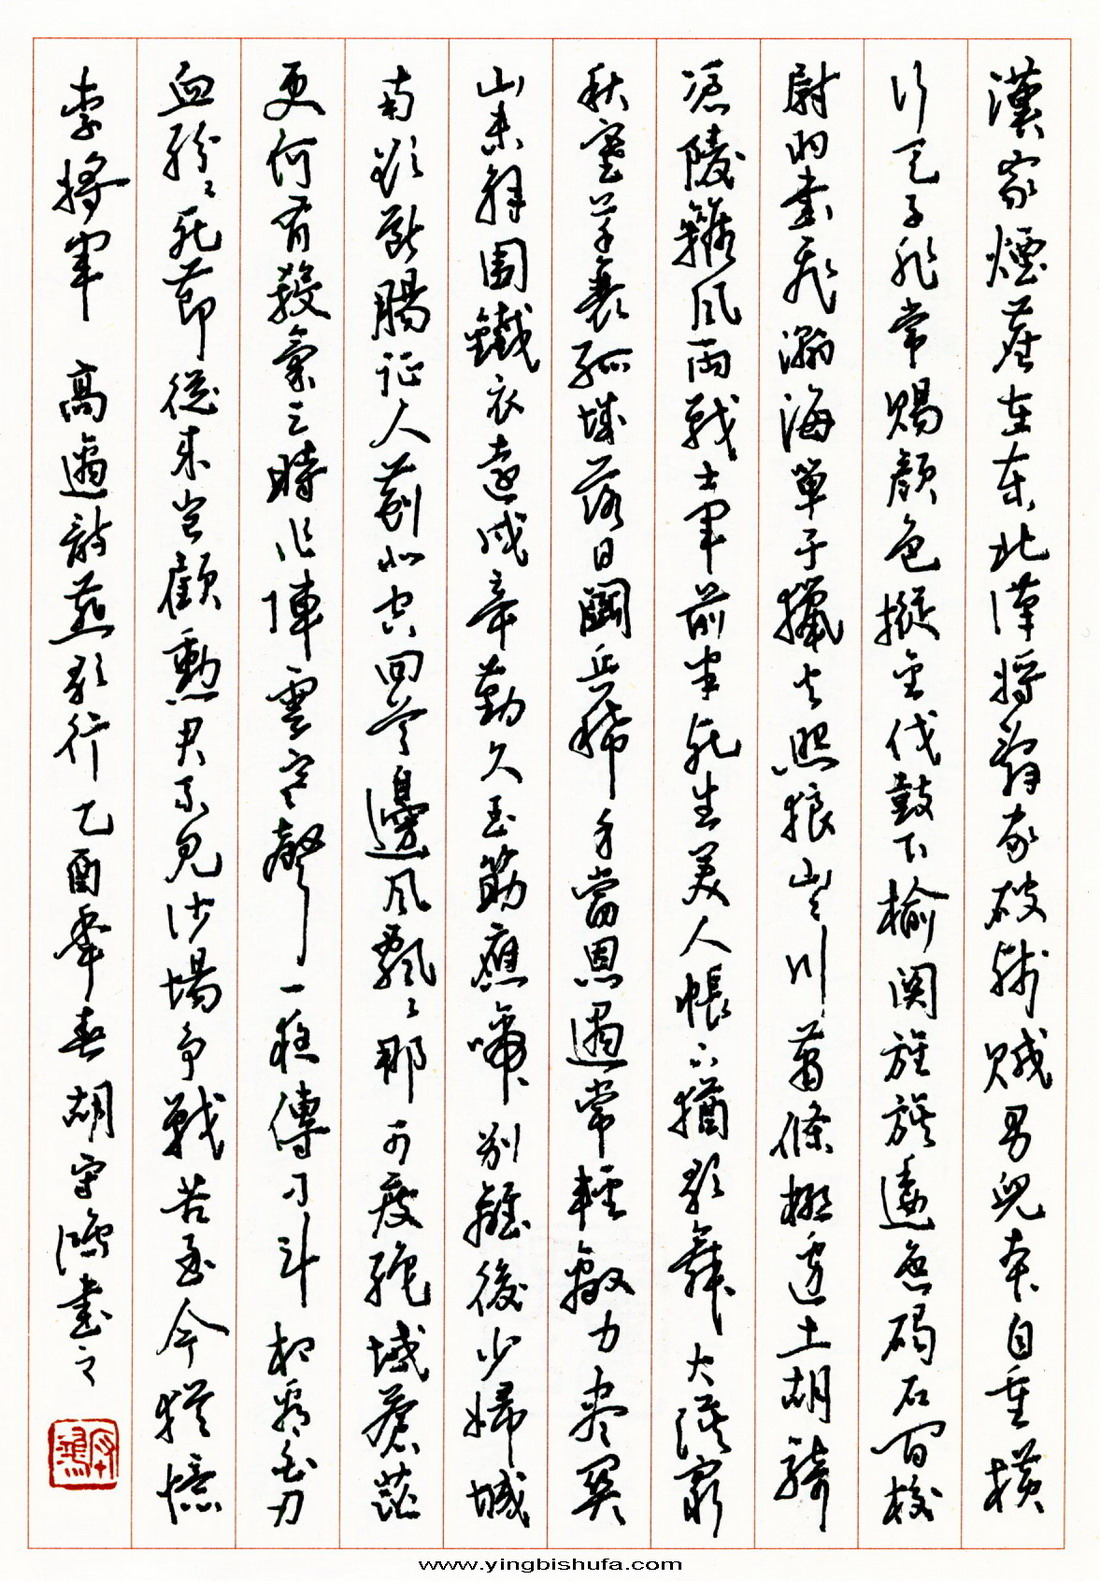 漢家煙塵在東北漢將辭家破殘賊男兒本自重橫
行天子非常賜顏色摐金伐鼓下榆関旌旆逶迤碣石間校
尉羽書飛瀚海單于獵火照狼山山川蕭條極邊土胡騎
憑陵雜風雨戰士軍前半死生美人帳下猶歌舞大漠窮
秋塞草衰孤城落日鬬兵稀身當恩遇常輕敵力盡関
山未解圍鐵衣遠戍辛勤久玉筯應啼別離後少婦城
南欲斷腸征人薊北空回首邊風飄々那可度絕域蒼茫
更何有殺氣三時作陣雲寒聲一夜傳刁斗相看白刃
血紛々死節從來豈顧勳君不見沙場爭戰苦至今猶憶
李將軍 高適詩燕歌行乙酉年春胡守鴻書之
守鴻
www.yingbishufa.com